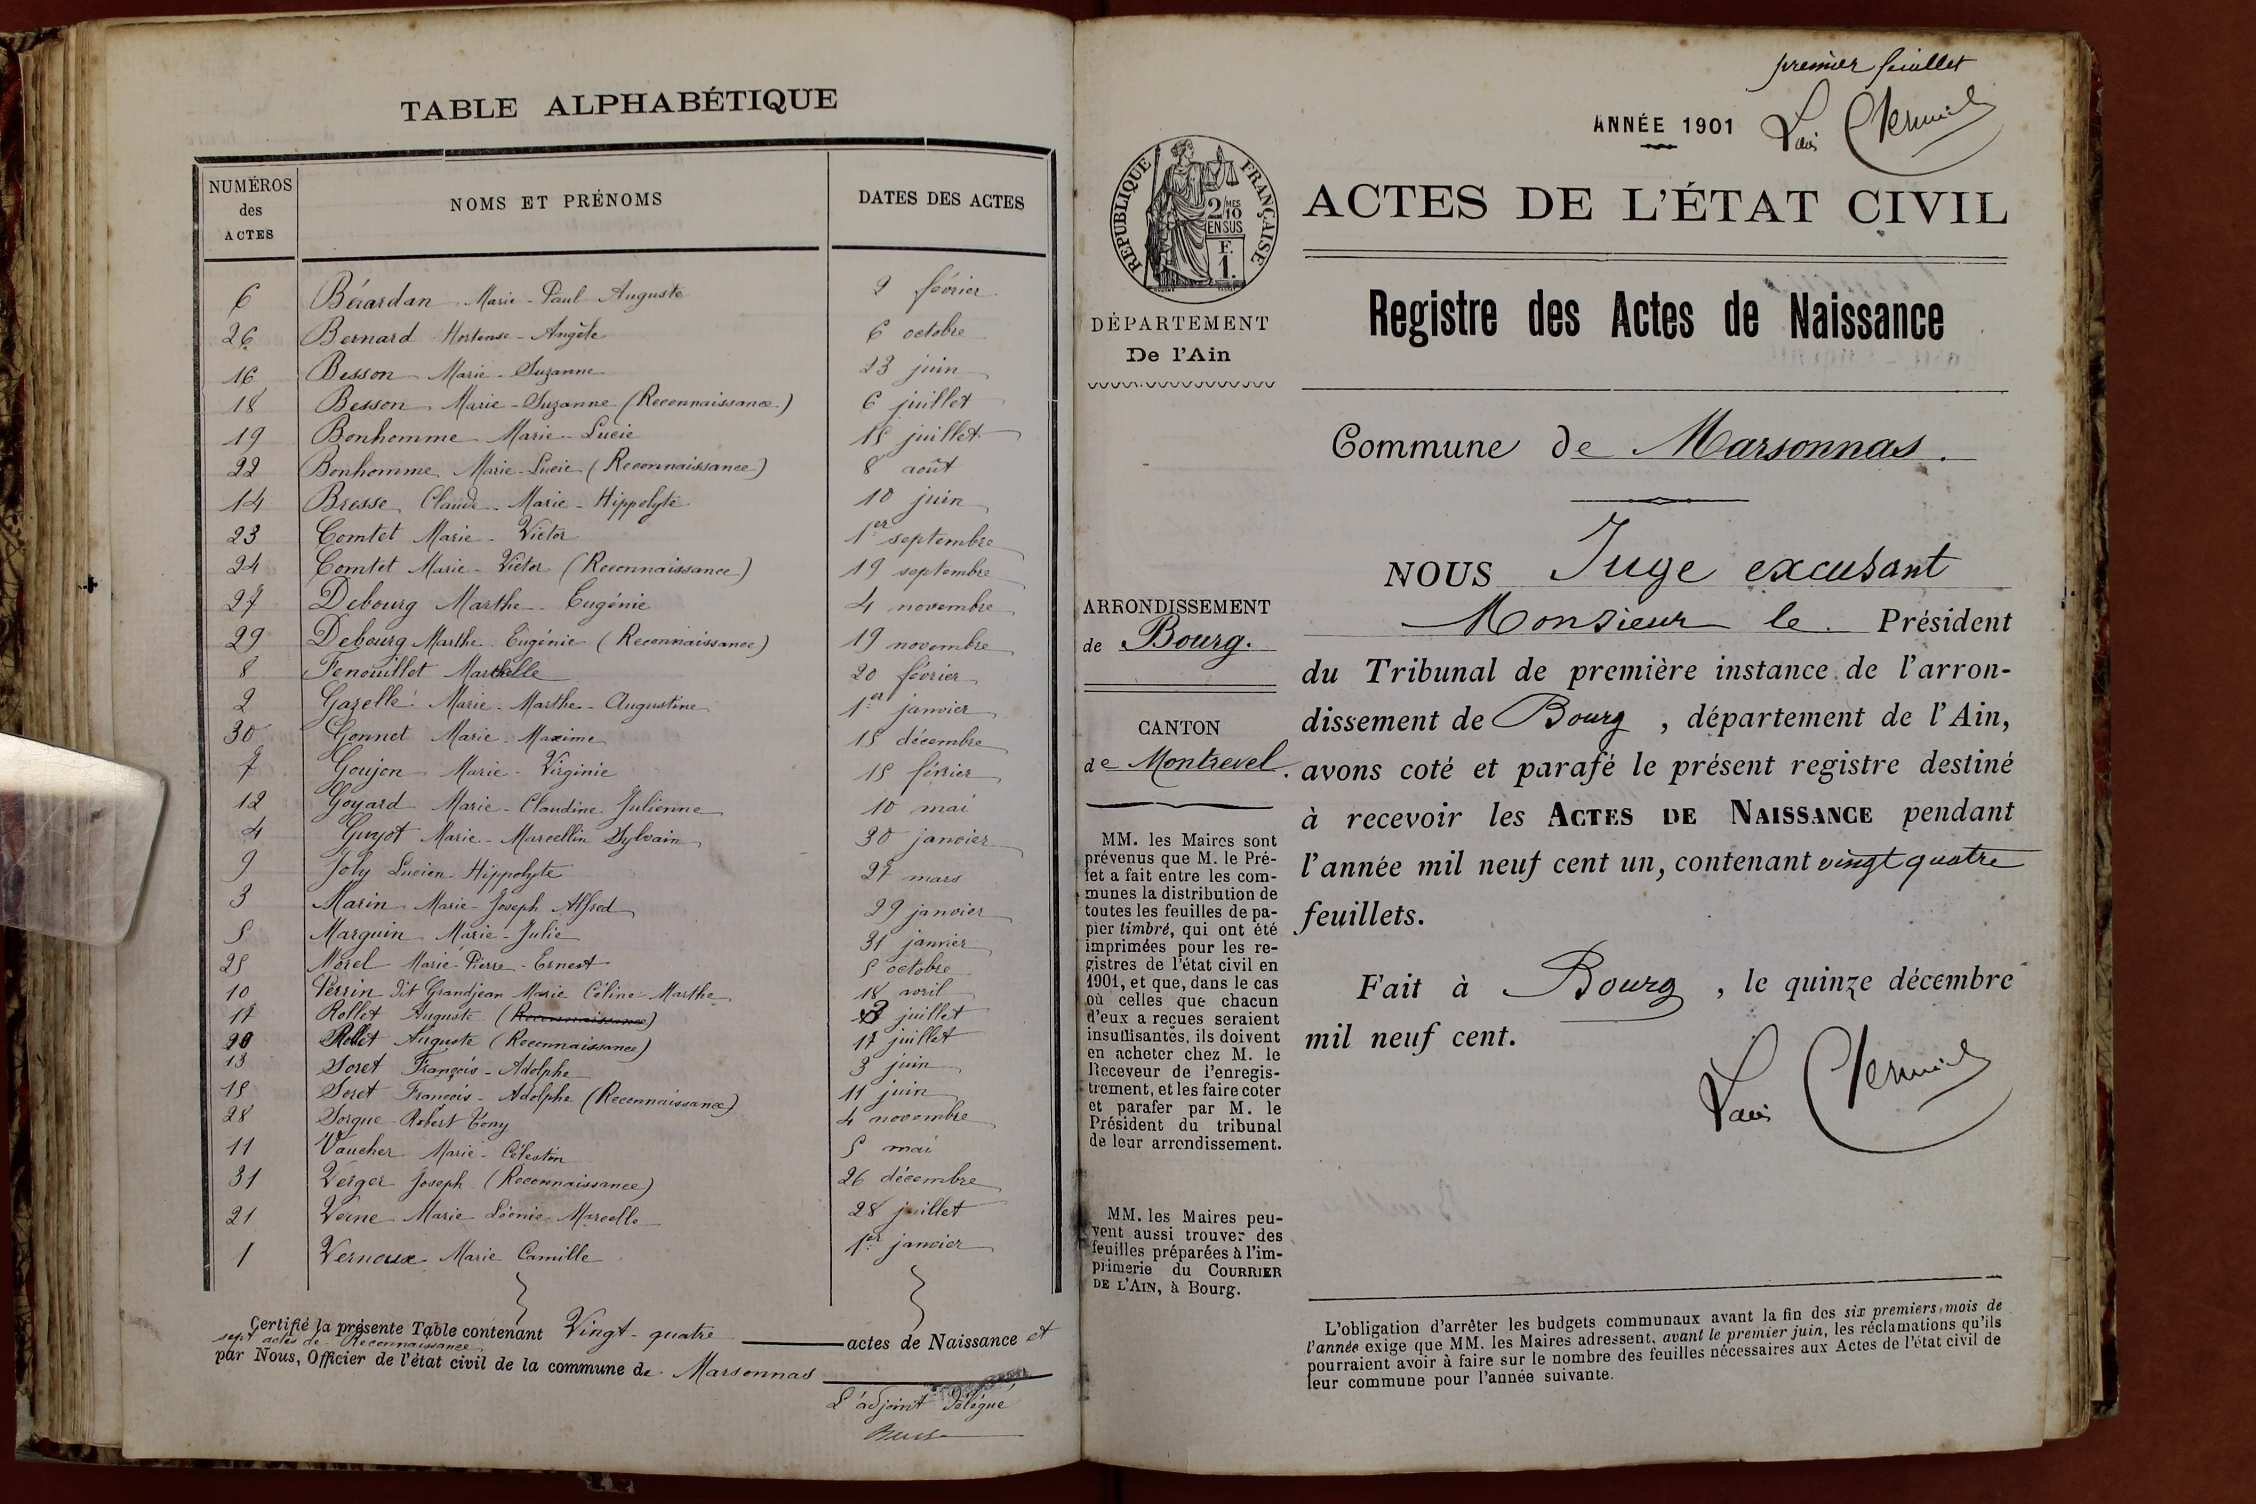 TABLE ALPHABÉTIQUE
NUMÉROS des ACTES NOMS ET PRÉNOMS DATES DES ACTES
6 Bérardan Marie-Paul Auguste 2 février
26 Bernard Hortense-Angèle 6 octobre
16 Besson Marie-Suzanne 23 juin
18 Besson Marie-Suzanne (Reconnaissance) 6 juillet
19 Bonhomme Marie-Lucie 15 juillet
22 Bonhomme Marie-Lucie (Reconnaissance) 8 août
14 Bresse Claude-Marie-Hippolyte 10 juin
23 Comtet Marie-Victor 1er septembre
24 Comtet Marie-Victor (Reconnaissance) 19 septembre
27 Debourg Marthe Eugénie 4 novembre
29 Debourg Marthe Eugénie (Reconnaissance) 19 novembre
8 Fenouillet Marthelle 20 février
2 Gazelle Marie-Marthe-Augustine 1er janvier
30 Gonnet Marie-Maxime 15 décembre
7 Goujon Marie-Virginie 15 février
12 Goyard Marie-Claudine Julienne 10 mai
4 Guyot Marie-Marcellin Sylvain 30 janvier
9 Joly Lucien-Hippolyte 27 mars
3 Marin Marie-Joseph Alfred 29 janvier
5 Marguin Marie-Julie 31 janvier
25 Morel Marie-Pierre-Ernest 5 octobre
10 Perrin dit Grandjean Marie Céline-Marthe 18 avril
17 Rollet Auguste (Reconnaissance) 3 juillet
20 Rollet Auguste (Reconnaissance) 17 juillet
13 Soret François-Adolphe 3 juin
15 Soret François-Adolphe (Reconnaissance) 11 juin
28 Sorgue Robert Tony 4 novembre
11 Vaucher Marie-Célestin 5 mai
31 Verger Joseph (Reconnaissance) 26 décembre
21 Verne Marie Léonie-Marcelle 28 juillet
1 Vernoux Marie Camille 1er janvier
Certifié la présente Table contenant Vingt-quatre actes de Naissance et
sept actes de Reconnaissance
par Nous, Officier de l'état civil de la commune de Marsonnas
L'adjoint délégué
premier feuillet
ANNÉE 1901
RÉPUBLIQUE FRANÇAISE
2/10 MES
EN SUS
F.
1.
ACTES DE L'ÉTAT CIVIL
Registre des Actes de Naissance
DÉPARTEMENT
De l'Ain
Commune de Marsonnas.
ARRONDISSEMENT
de Bourg.
CANTON
de Montrevel.
MM. les Maires sont
prévenus que M. le Pré-
fet a fait entre les com-
munes la distribution de
toutes les feuilles de pa-
pier timbré, qui ont été
imprimées pour les re-
gistres de l'état civil en
1901, et que, dans le cas
où celles que chacun
d'eux a reçues seraient
insuffisantes, ils doivent
en acheter chez M. le
Receveur de l'enregis-
trement, et les faire coter
et parafer par M. le
Président du tribunal
de leur arrondissement.
MM. les Maires peu-
vent aussi trouver des
feuilles préparées à l'im-
primerie du COURRIER
DE L'AIN, à Bourg.
NOUS Juge excusant
Monsieur le Président
du Tribunal de première instance de l'arron-
dissement de Bourg, département de l'Ain,
avons coté et parafé le présent registre destiné
à recevoir les ACTES DE NAISSANCE pendant
l'année mil neuf cent un, contenant vingt quatre
feuillets.
Fait à Bourg, le quinze décembre
mil neuf cent.
L'obligation d'arrêter les budgets communaux avant la fin des six premiers mois de
l'année exige que MM. les Maires adressent, avant le premier juin, les réclamations qu'ils
pourraient avoir à faire sur le nombre des feuilles nécessaires aux Actes de l'état civil de
leur commune pour l'année suivante.